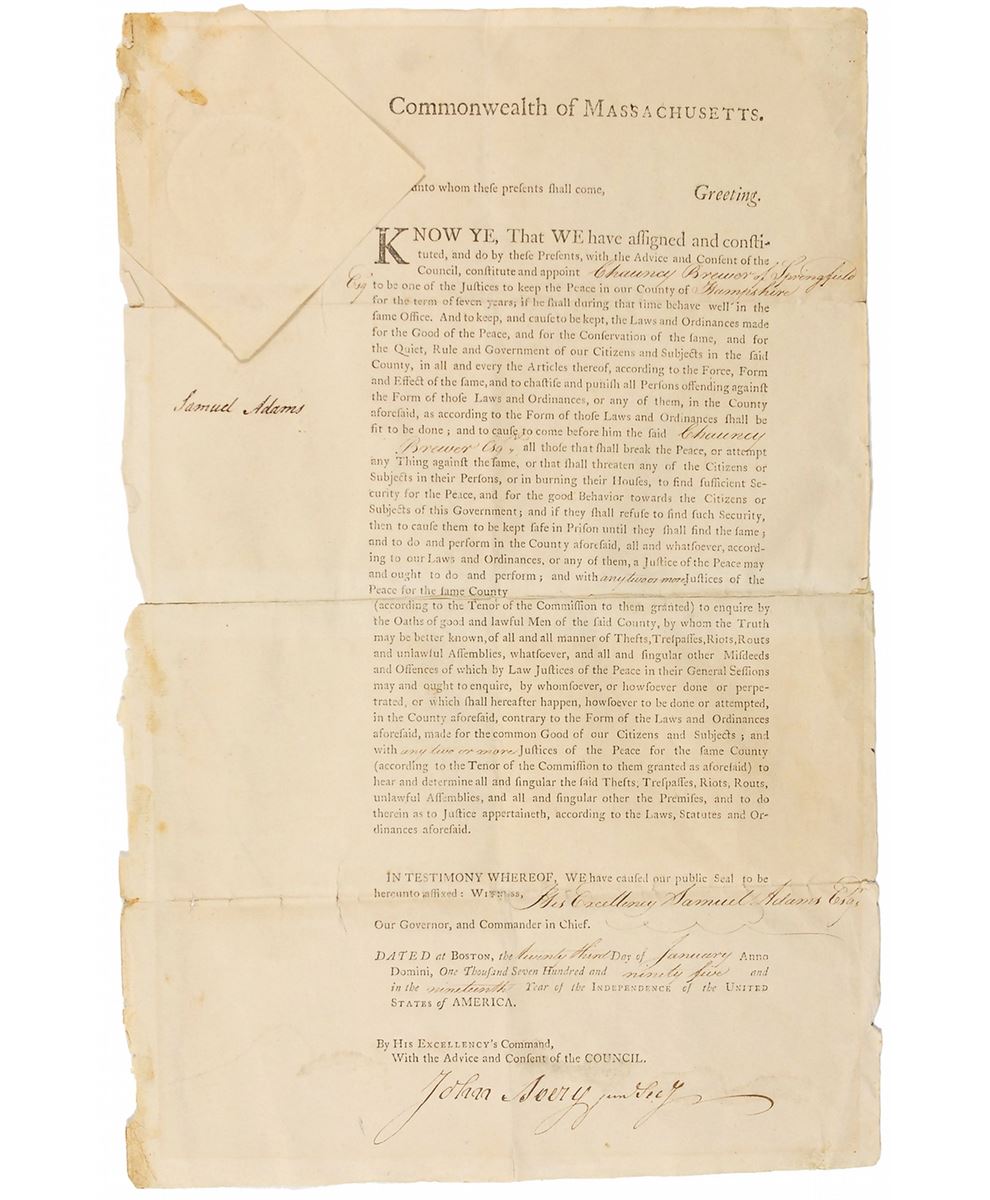 Commonwealth of MASSACHUSETTS.
unto whom theſe preſents ſhall come, Greeting.
KNOW YE, That WE have aſſigned and conſti-
tuted, and do by theſe Preſents, with the Advice and Conſent of the
Council, conſtitute and appoint Chauncy Brewer of Springfield
Esqr to be one of the Juſtices to keep the Peace in our County of Hampshire
for the term of ſeven years; if he ſhall during that time behave well in the
ſame Office. And to keep, and cauſe to be kept, the Laws and Ordinances made
for the Good of the Peace, and for the Conſervation of the ſame, and for
the Quiet, Rule and Government of our Citizens and Subjects in the ſaid
County, in all and every the Articles thereof, according to the Force, Form
and Effect of the ſame, and to chaſtiſe and puniſh all Perſons offending againſt
the Form of thoſe Laws and Ordinances, or any of them, in the County
Samuel Adams
aforeſaid, as according to the Form of thoſe Laws and Ordinances ſhall be
fit to be done; and to cauſe to come before him the ſaid Chauncy
Brewer Esqr, all thoſe that ſhall break the Peace, or attempt
any Thing againſt the ſame, or that ſhall threaten any of the Citizens or
Subjects in their Perſons, or in burning their Houſes, to find ſufficient Se-
curity for the Peace, and for the good Behavior towards the Citizens or
Subjects of this Government; and if they ſhall refuſe to find ſuch Security,
then to cauſe them to be kept ſafe in Priſon until they ſhall find the ſame;
and to do and perform in the County aforeſaid, all and whatſoever, accord-
ing to our Laws and Ordinances, or any of them, a Juſtice of the Peace may
and ought to do and perform; and with any two or more Juſtices of the
Peace for the ſame County
(according to the Tenor of the Commiſſion to them granted) to enquire by
the Oaths of good and lawful Men of the ſaid County, by whom the Truth
may be better known, of all and all manner of Thefts, Treſpaſſes, Riots, Routs
and unlawful Aſſemblies, whatſoever, and all and ſingular other Miſdeeds
and Offences of which by Law Juſtices of the Peace in their General Seſſions
may and ought to enquire, by whomſoever, or howſoever done or perpe-
trated, or which ſhall hereafter happen, howſoever to be done or attempted,
in the County aforeſaid, contrary to the Form of the Laws and Ordinances
aforeſaid, made for the common Good of our Citizens and Subjects; and
with any two or more Juſtices of the Peace for the ſame County
(according to the Tenor of the Commiſſion to them granted as aforeſaid) to
hear and determine all and ſingular the ſaid Thefts, Treſpaſſes, Riots, Routs,
unlawful Aſſemblies, and all and ſingular other the Premiſes, and to do
therein as to Juſtice appertaineth, according to the Laws, Statutes and Or-
dinances aforeſaid.
IN TESTIMONY WHEREOF, WE have cauſed our public Seal to be
hereunto affixed: WITNESS, His Excellency Samuel Adams Esqr
Our Governor, and Commander in Chief.
DATED at BOSTON, the twenty third Day of January Anno
Domini, One Thouſand Seven Hundred and ninety five and
in the nineteenth Year of the INDEPENDENCE of the UNITED
STATES of AMERICA.
By HIS EXCELLENCY's Command,
With the Advice and Conſent of the COUNCIL.
John Avery jun Secy